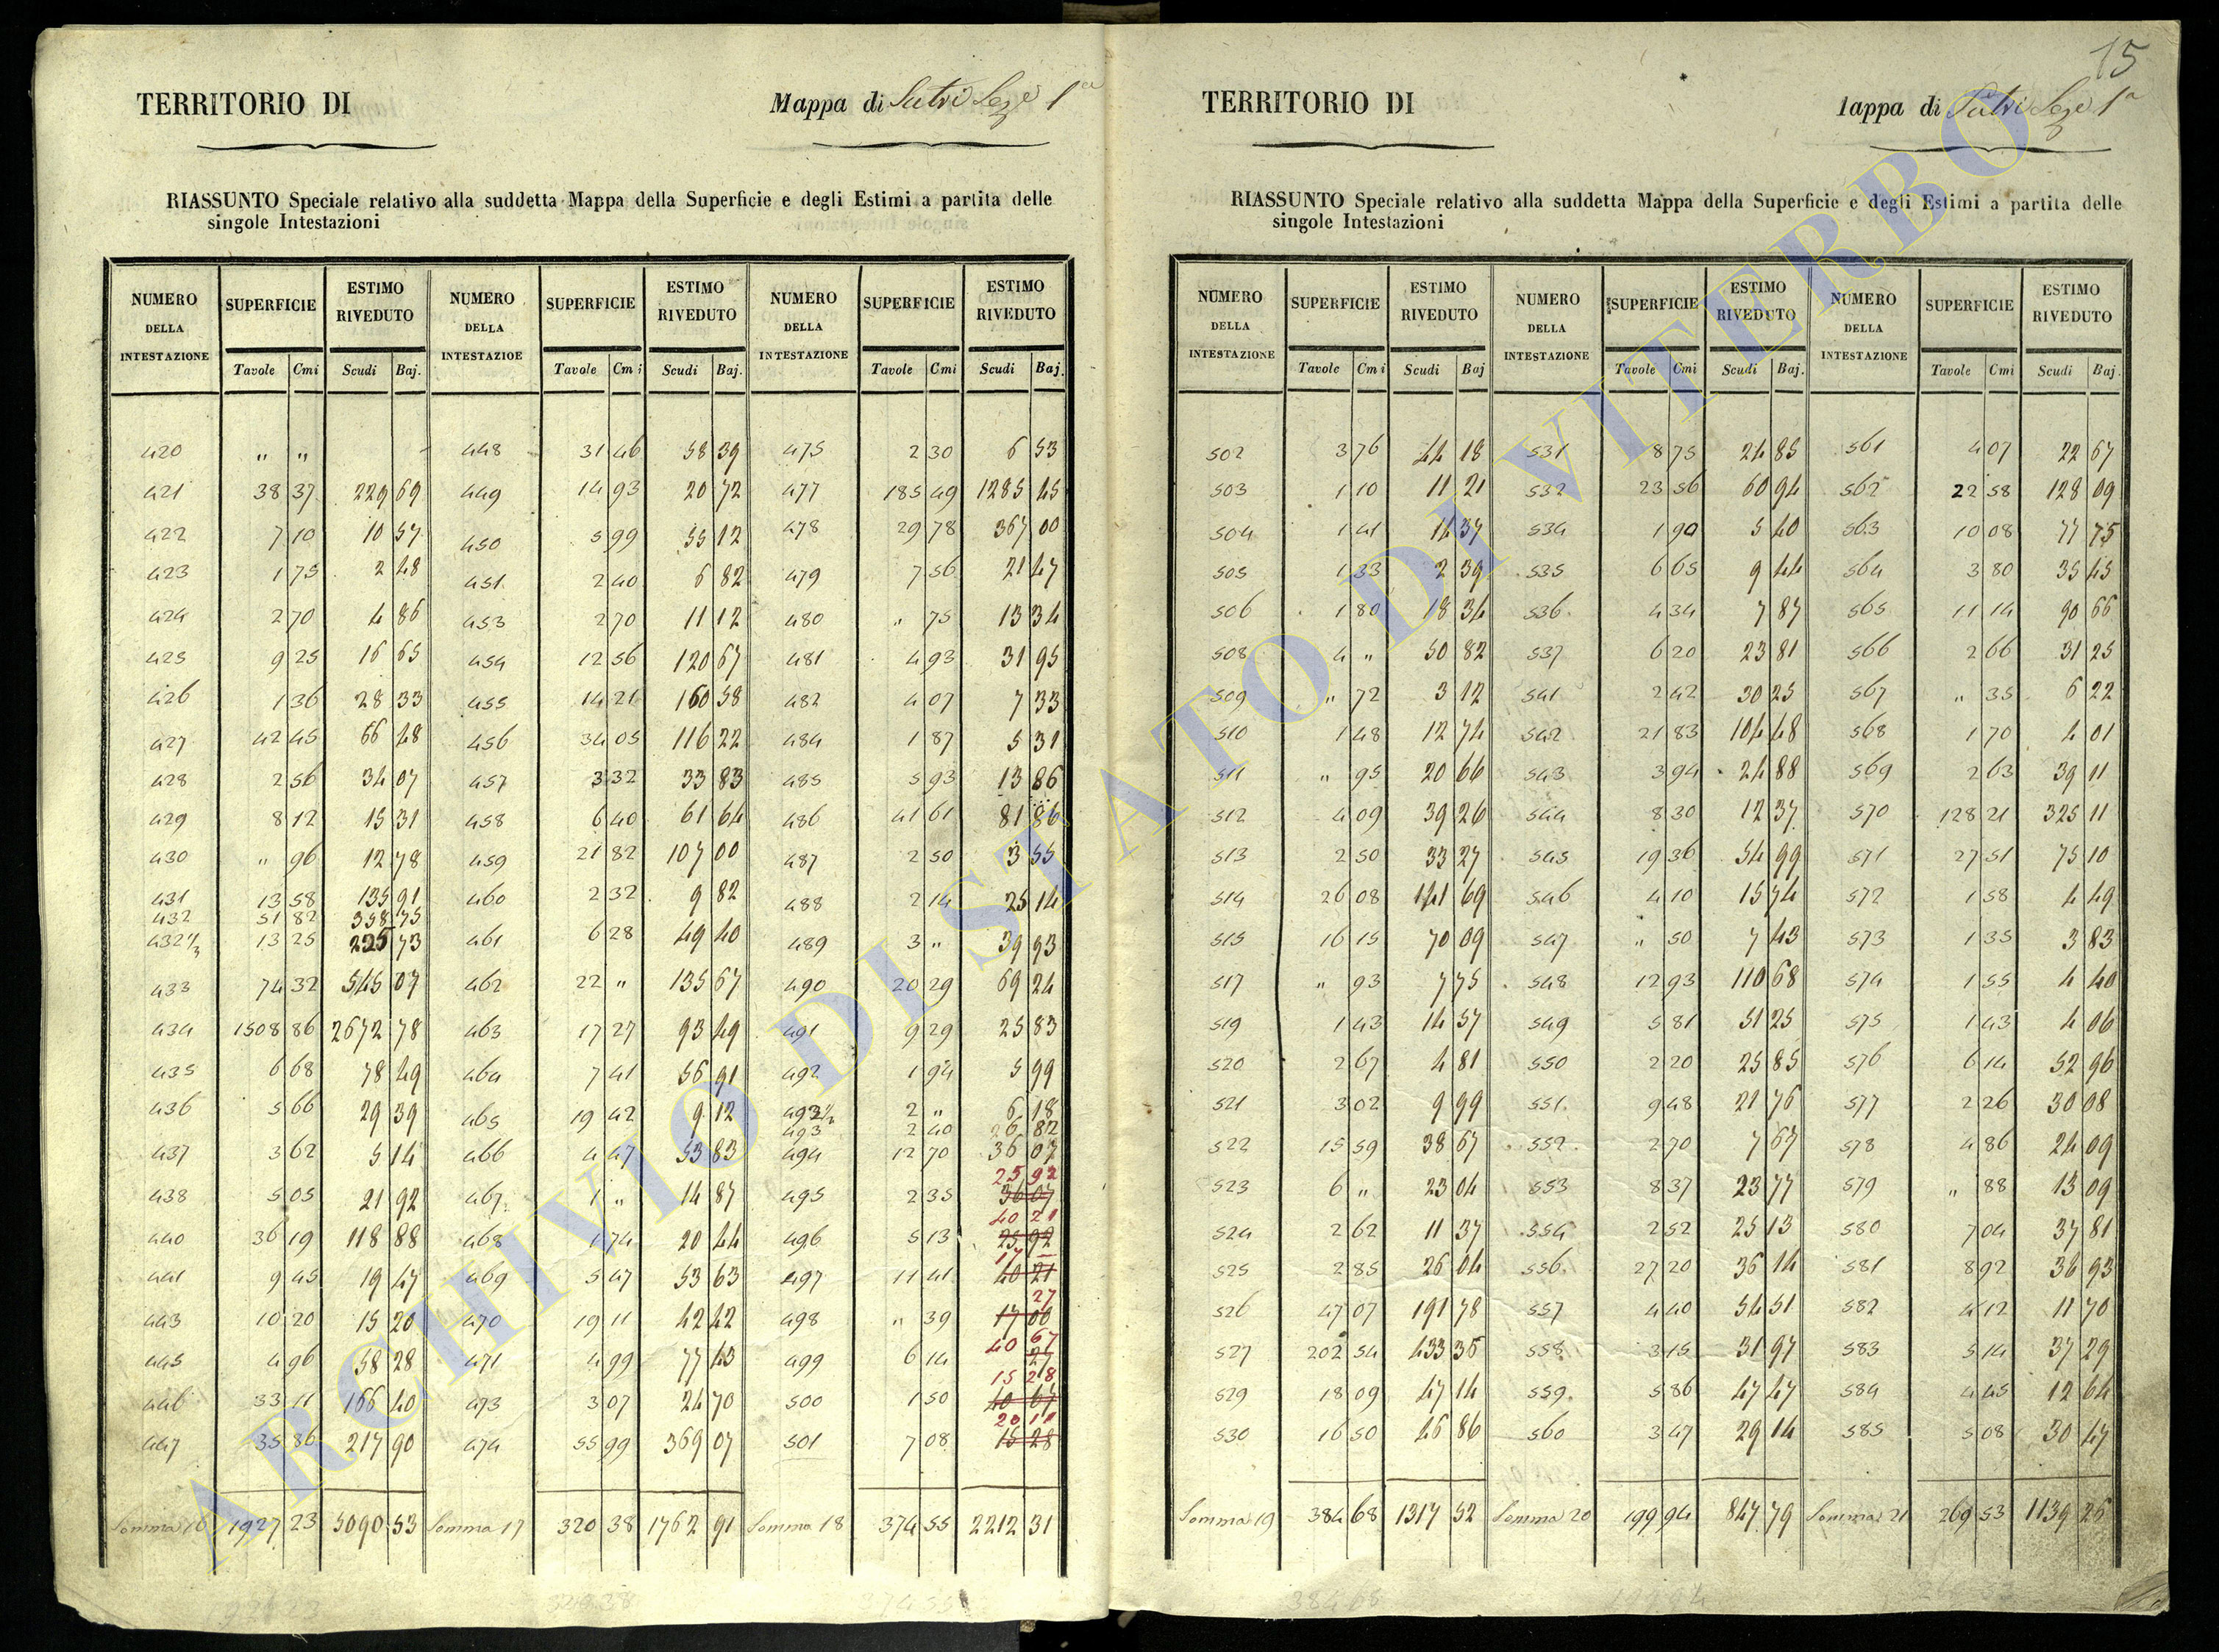 TERRITORIO DI Mappa di Sutri Sez.e 1a
RIASSUNTO Speciale relativo alla suddetta Mappa della Superficie e degli Estimi a partita delle
singole Intestazioni
NUMERO DELLA INTESTAZIONE SUPERFICIE ESTIMO RIVEDUTO NUMERO DELLA INTESTAZIOE SUPERFICIE ESTIMO RIVEDUTO NUMERO DELLA INTESTAZIONE SUPERFICIE ESTIMO RIVEDUTO
Tavole Cmi Scudi Baj. Tavole Cmi Scudi Baj. Tavole Cmi Scudi Baj.
420 " " 448 31 46 58 39 475 2 30 6 53
421 38 37 229 69 449 14 93 20 72 477 185 49 1285 45
422 7 10 10 57 450 5 99 55 12 478 29 78 367 00
423 1 75 2 48 451 2 40 6 82 479 7 56 21 47
424 2 70 4 86 453 2 70 11 12 480 " 75 13 34
425 9 25 16 65 454 12 56 120 67 481 4 93 31 95
426 1 36 28 33 455 14 21 160 58 482 4 07 7 33
427 42 45 66 48 456 34 05 116 22 484 1 87 5 31
428 2 56 34 07 457 3 32 33 83 485 5 93 13 86
429 8 12 15 31 458 6 40 61 64 486 41 61 81 86
430 " 96 12 78 459 21 82 107 00 487 2 50 3 55
431 13 58 135 91 460 2 32 9 82 488 2 14 25 14
432 51 82 358 75
432 1/2 13 25 225 73 461 6 28 49 40 489 3 " 39 93
433 74 32 545 07 462 22 " 135 67 490 20 29 69 24
434 1508 86 2672 78 463 17 27 93 49 491 9 29 25 83
435 6 68 78 49 464 7 41 56 91 492 1 94 5 99
436 5 66 29 39 465 19 42 9 12 492 1/2 2 " 6 18
493 2 40 26 82
437 3 62 5 14 466 4 47 53 83 494 12 70 36 07
25 92
438 5 05 21 92 467 1 " 14 87 495 2 35 36 07
40 21
440 36 19 118 88 468 1 74 20 44 496 5 13 25 92
17 —
441 9 45 19 47 469 5 47 53 63 497 11 41 40 21
27
443 10 20 15 20 470 19 11 42 42 498 " 39 17 00
40 67
445 4 96 58 28 471 4 99 77 43 499 6 14 27
15 28
446 33 11 166 40 473 3 07 24 70 500 1 50 40 67
20 11
447 35 86 217 90 474 55 99 369 07 501 7 08 15 28
Somma 16 1927 23 5090 53 Somma 17 320 38 1762 91 Somma 18 374 55 2212 31
320 38 374 55
15
TERRITORIO DI Iappa di Sutri Sez.e 1a
RIASSUNTO Speciale relativo alla suddetta Mappa della Superficie e degli Estimi a partita delle
singole Intestazioni
NUMERO DELLA INTESTAZIONE SUPERFICIE ESTIMO RIVEDUTO NUMERO DELLA INTESTAZIONE SUPERFICIE ESTIMO RIVEDUTO NUMERO DELLA INTESTAZIONE SUPERFICIE ESTIMO RIVEDUTO
Tavole Cmi Scudi Baj Tavole Cmi Scudi Baj. Tavole Cmi Scudi Baj.
502 3 76 44 18 531 8 75 24 85 561 4 07 22 67
503 1 10 11 21 532 23 56 60 94 562 22 58 128 09
504 1 41 14 37 534 1 90 5 40 563 10 08 77 75
505 1 33 2 39 535 6 65 9 44 564 3 80 35 45
506 1 80 18 34 536 4 34 7 87 565 11 14 90 66
508 4 " 50 82 537 6 20 23 81 566 2 66 31 25
509 " 72 3 12 541 2 42 30 25 567 " 35 6 22
510 1 48 12 74 542 21 83 104 48 568 1 70 4 01
511 " 95 20 66 543 3 94 24 88 569 2 63 39 11
512 4 09 39 26 544 8 30 12 37 570 128 21 325 11
513 2 50 33 27 545 19 36 54 99 571 27 51 75 10
514 26 08 141 69 546 4 10 15 74 572 1 58 4 49
515 16 15 70 09 547 " 50 7 43 573 1 35 3 83
517 " 93 7 75 548 12 93 110 68 574 1 55 4 40
519 1 43 14 57 549 5 81 51 25 575 1 43 4 06
520 2 67 4 81 550 2 20 25 85 576 6 14 52 96
521 3 02 9 99 551 9 48 21 76 577 2 26 30 08
522 15 59 38 67 552 2 70 7 67 578 4 86 24 09
523 6 " 23 04 553 8 37 23 77 579 " 88 13 09
524 2 62 11 37 554 2 52 25 13 580 7 04 37 81
525 2 85 26 04 556 27 20 36 14 581 8 92 36 93
526 47 07 191 78 557 4 40 54 51 582 4 12 11 70
527 202 54 433 35 558 3 15 31 97 583 5 14 37 29
529 18 09 47 14 559 5 86 47 47 584 4 45 12 64
530 16 50 46 86 560 3 47 29 14 585 5 08 30 47
Somma 19 384 68 1317 52 Somma 20 199 94 847 79 Somma 21 269 53 1139 26
384 68
ARCHIVIO DI STATO DI VITERBO